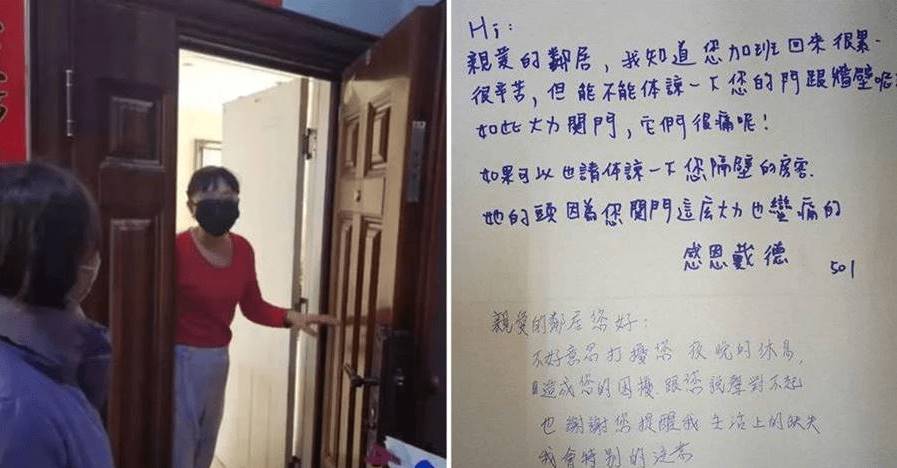 Hi:
親愛的鄰居，我知道您加班回來很累.
很辛苦，但能不能体諒一下您的門跟牆壁呢
如此大力関門，它們很痛呢！
如果可以也請体諒一下您隔壁的房客.
她的頭因為您関門這底大力也蠻痛的
感恩戴德
501
親愛的鄰居您好：
不好意思打擾您 夜晚的休息，
造成您的困擾.跟您說聲對不起
也謝謝您提醒我生活上的缺失
我會特別的注意